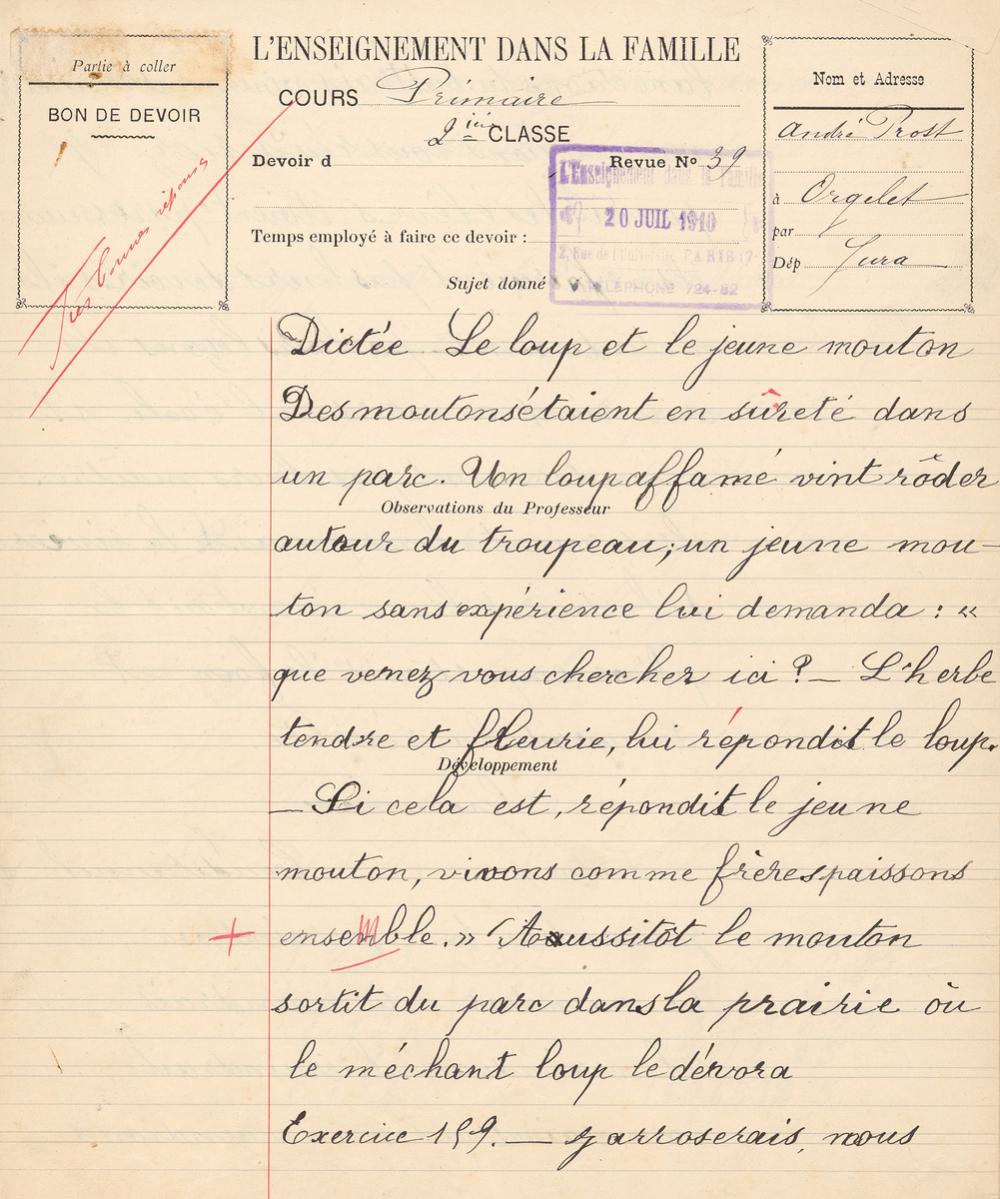 L'ENSEIGNEMENT DANS LA FAMILLE
Partie à coller
BON DE DEVOIR
Très bonnes réponses
COURS Primaire
2ième CLASSE
Devoir d
Revue No 39
Temps employé à faire ce devoir :
Sujet donné
L'Enseignement dans la Famille
20 JUIL 1910
2, Rue de l'Université, PARIS 17
TÉLÉPHONE 724-82
Nom et Adresse
André Prost
à Orgelet
par
Dép Jura
Dictée Le loup et le jeune mouton
Des moutons étaient en sûreté dans
un parc. Un loup affamé vint rôder
Observations du Professeur
autour du troupeau; un jeune mou-
ton sans expérience lui demanda : «
que venez vous chercher ici ? — L'herbe
tendre et fleurie, lui répondit le loup.
Développement
— Si cela est, répondit le jeune
mouton, vivons comme frères paissons
ensemble. » Aussitôt le mouton
sortit du parc dans la prairie où
le méchant loup le dévora
Exercice 159. — j'arroserais, nous